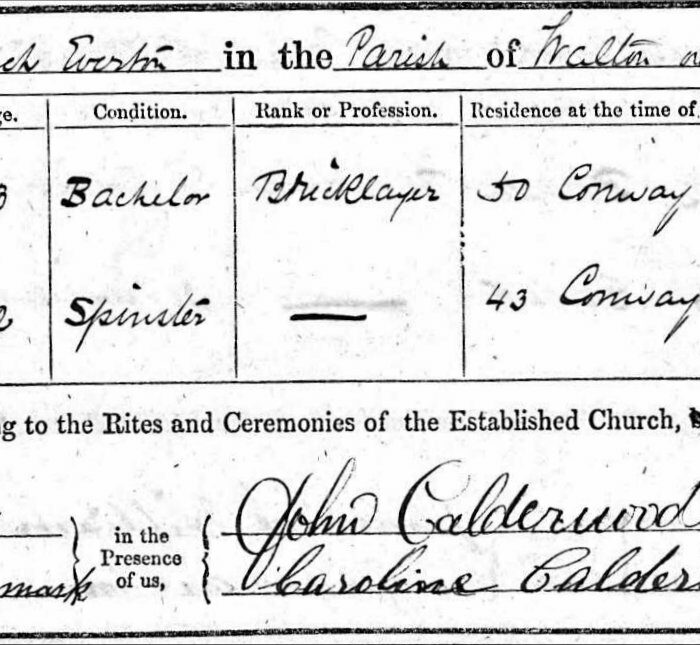 Everton in the Parish of Walton
Condition. Rank or Profession. Residence at the time of
Bachelor Bricklayer 50 Conway
Spinster — 43 Conway
to the Rites and Ceremonies of the Established Church,
John Calderwood
in the
Presence
of us,
mark Caroline Calder